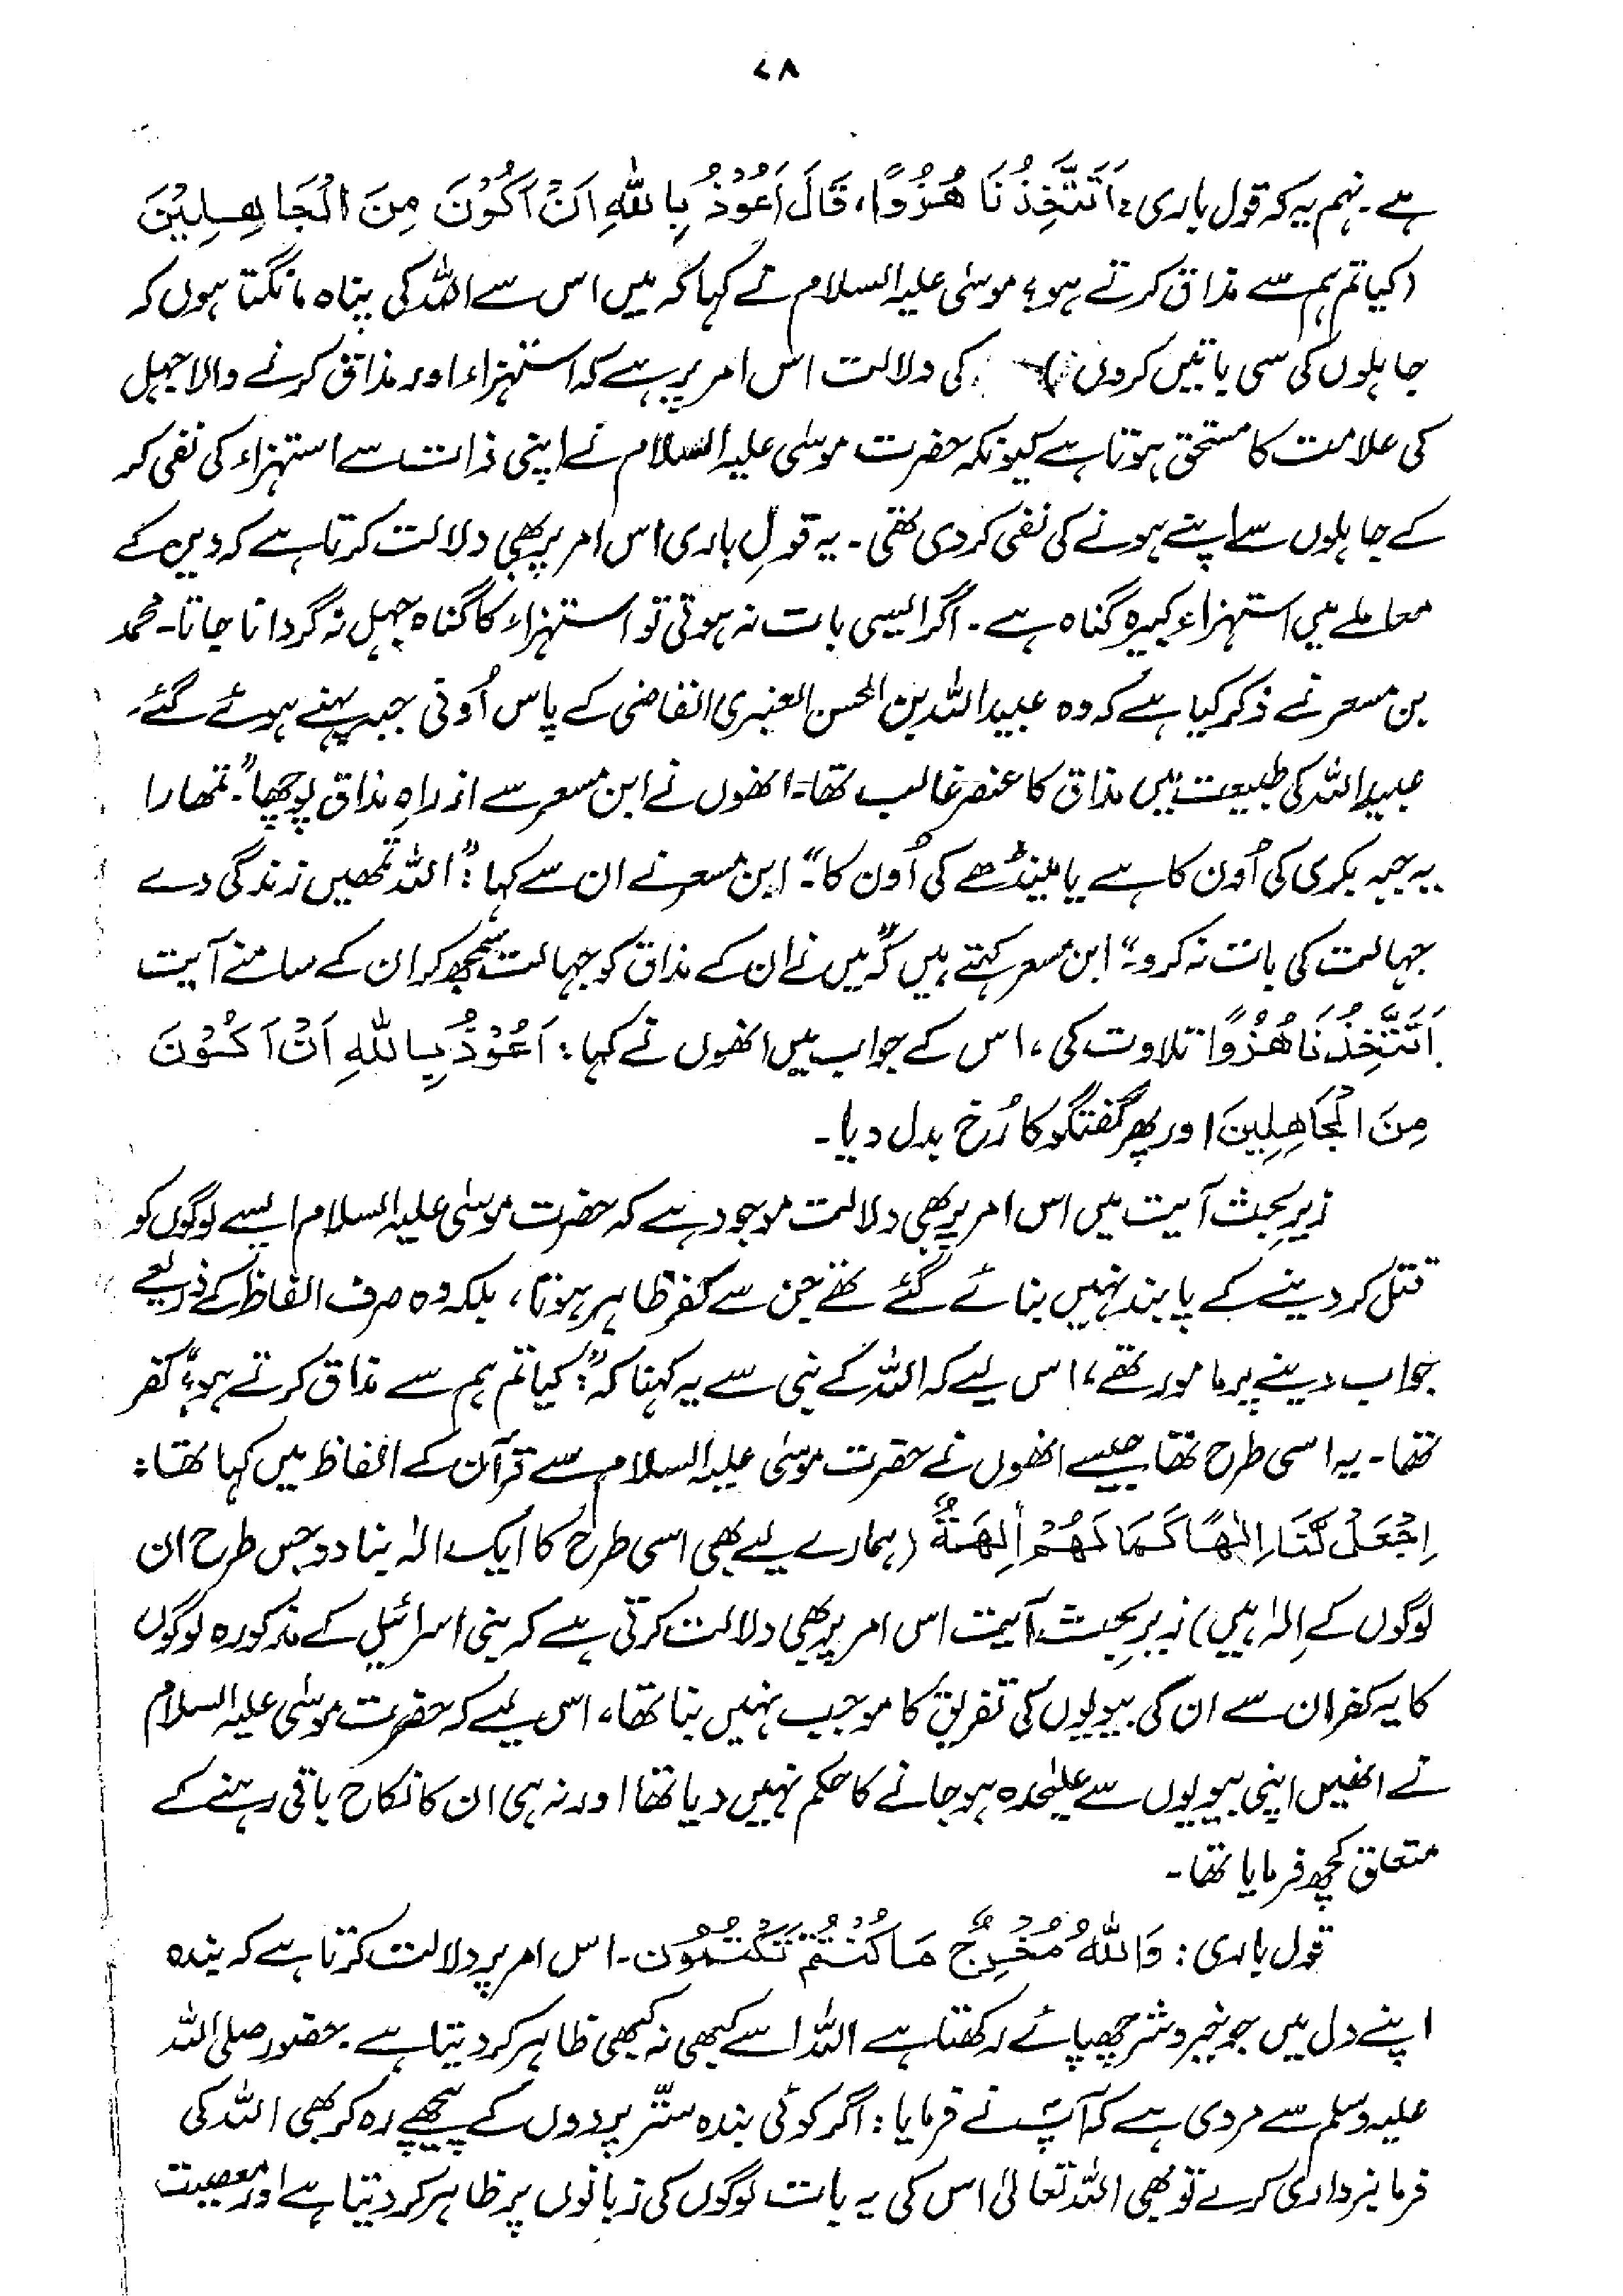 ۷۸
ہے۔ نہم یہ کہ قول باری: اَتَتَّخِذُنَا هُزُوًا، قَالَ اَعُوْذُ بِاللّٰهِ اَنْ اَكُوْنَ مِنَ الْجَاهِلِيْنَ
(کیا تم ہم سے مذاق کرتے ہو؟ موسیٰ علیہ السلام نے کہا کہ میں اس سے اللہ کی پناہ مانگتا ہوں کہ
جاہلوں کی سی باتیں کروں) کی دلالت اس امر پر ہے کہ استہزاء اور مذاق کرنے والا جہل
کی علامت کا مستحق ہوتا ہے کیونکہ حضرت موسیٰ علیہ السلام نے اپنی ذات سے استہزاء کی نفی کر
کے جاہلوں سے اپنے ہونے کی نفی کر دی تھی۔ یہ قولِ باری اس امر پر بھی دلالت کرتا ہے کہ دین کے
معاملے میں استہزاء کبیرہ گناہ ہے۔ اگر ایسی بات نہ ہوتی تو استہزاء کا گناہ جہل نہ گردانا جاتا۔ محمد
بن مسعر نے ذکر کیا ہے کہ وہ عبید اللہ بن الحسن العنبری القاضی کے پاس اُونی جبہ پہنے ہوئے گئے۔
عبید اللہ کی طبیعت میں مذاق کا عنصر غالب تھا۔ انھوں نے ابن مسعر سے از راہِ مذاق پوچھا "۔ تمھارا
یہ جبہ بکری کی اُون کا ہے یا مینڈھے کی اُون کا"۔ ابن مسعر نے ان سے کہا: "اللہ تمھیں زندگی دے
جہالت کی بات نہ کرو"۔ ابن مسعر کہتے ہیں کہ "میں نے ان کے مذاق کو جہالت سمجھ کر ان کے سامنے آیت
اَتَتَّخِذُنَا هُزُوًا تلاوت کی، اس کے جواب میں انھوں نے کہا: اَعُوْذُ بِاللّٰهِ اَنْ اَكُوْنَ
مِنَ الْجَاهِلِينَ اور پھر گفتگو کا رُخ بدل دیا۔
زیرِ بحث آیت میں اس امر پر بھی دلالت موجود ہے کہ حضرت موسیٰ علیہ السلام ایسے لوگوں کو
قتل کر دینے کے پابند نہیں بنائے گئے تھے جن سے کفر ظاہر ہوتا، بلکہ وہ صرف الفاظ کے ذریعے
جواب دینے پر مامور تھے، اس لیے کہ اللہ کے نبی سے یہ کہنا کہ: "کیا تم ہم سے مذاق کرتے ہو؟" کفر
تھا۔ یہ اسی طرح تھا جیسے انھوں نے حضرت موسیٰ علیہ السلام سے قرآن کے الفاظ میں کہا تھا:
اِجْعَلْ لَّنَا اِلٰهًا كَمَا لَهُمْ اٰلِهَةٌ (ہمارے لیے بھی اسی طرح کا ایک الٰہ بنا دو جس طرح ان
لوگوں کے اِلٰہ ہیں) زیرِ بحث آیت اس امر پر بھی دلالت کرتی ہے کہ بنی اسرائیل کے مذکورہ لوگوں
کا یہ کفر ان سے ان کی بیویوں کی تفریق کا موجب نہیں بنا تھا، اس لیے کہ حضرت موسیٰ علیہ السلام
نے انھیں اپنی بیویوں سے علیٰحدہ ہو جانے کا حکم نہیں دیا تھا اور نہ ہی ان کا نکاح باقی رہنے کے
متعلق کچھ فرمایا تھا۔
قول باری: وَاللّٰهُ مُخْرِجٌ مَا كُنْتُمْ تَكْتُمُون۔ اس امر پر دلالت کرتا ہے کہ بندہ
اپنے دل میں جو خیر و شر چھپائے رکھتا ہے اللہ اسے کبھی نہ کبھی ظاہر کر دیتا ہے۔ حضور صلی اللہ
علیہ وسلم سے مروی ہے کہ آپؐ نے فرمایا: اگر کوئی بندہ ستّر پردوں کے پیچھے رہ کر بھی اللہ کی
فرمانبرداری کرے تو بھی اللہ تعالیٰ اس کی یہ بات لوگوں کی زبانوں پر ظاہر کر دیتا ہے اور معصیت